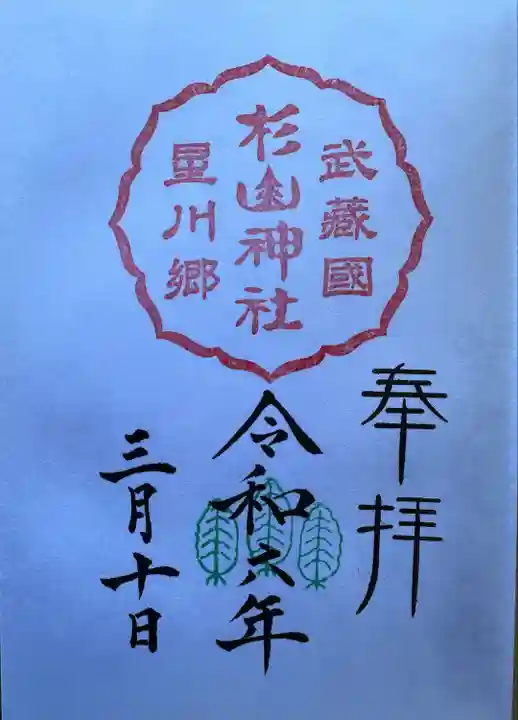 武蔵國
杉山神社
星川郷
奉拝
令和六年
三月十日